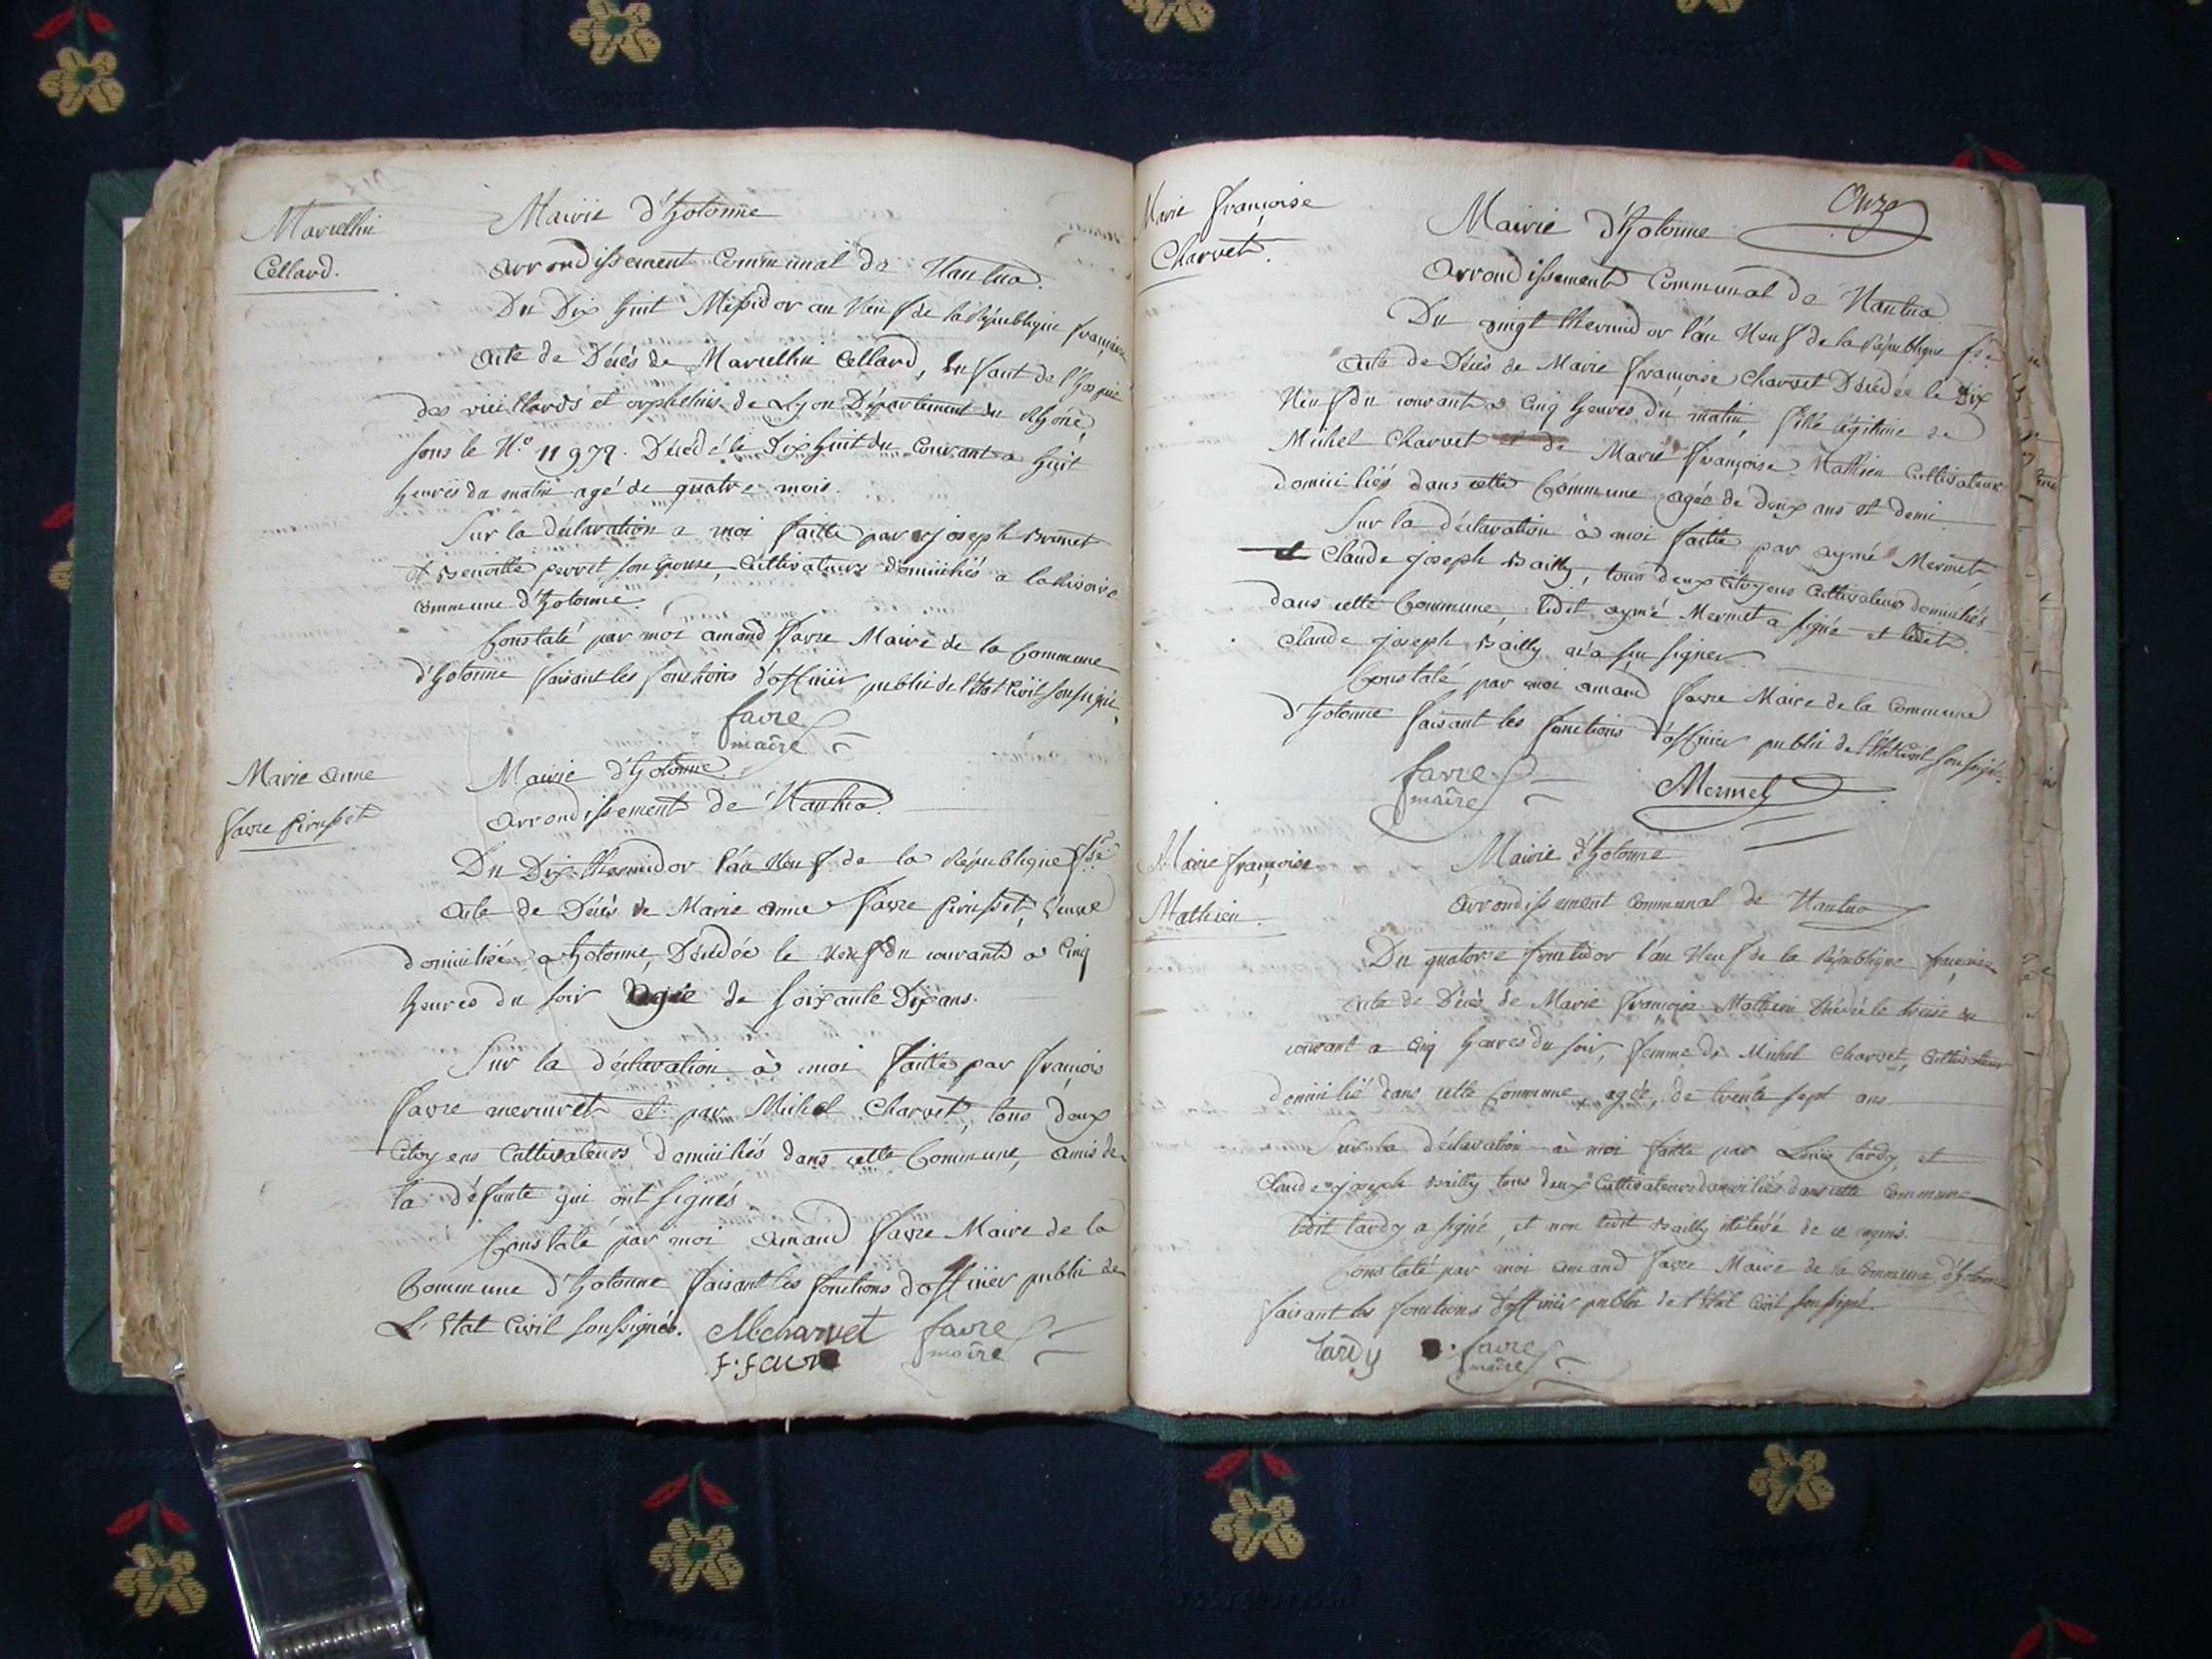 Marcellin
Cellard.
Mairie d'hotonne
arrondissement Communal de Nantua.
Du Dix huit Messidor an Neuf de la République française
acte de Décès de Marcellin Cellard, Enfant de l'hospice
des vieillards et orphelins de Lyon Département du Rhône,
sous le N.o 11979. Décédé le Dix huit du Courant a huit
heures du matin agé de quatre mois.
Sur la déclaration a moi faitte par joseph Brunet
et Benoitte perret son Epouse, Cultivateurs domiciliés a
commune d'hotonne.
Constaté par moi amand favre Maire de la Commune
d'hotonne faisant les fonctions d'officier public de l'Etat Civil soussigné.
favre
maire
Marie anne
favre
Mairie d'hotonne.
arrondissement de Nantua.
Du Dix thermidor l'an Neuf de la République f.se
acte de Décès de Marie anne favre veuve
domiciliée a hotonne, Décédée le Neuf du courant a Cinq
heures du soir agée de soixante Dix ans.
Sur la déclaration à moi faitte par françois
favre mermet et par Michel Charvet, tous deux
Citoyens Cultivateurs domiciliés dans cette Commune, amis de
la défunte qui ont signés
Constaté par moi amand favre Maire de la
Commune d'hotonne faisant les fonctions d'officier public de
L'Etat Civil soussignés. Mcharvet favre
maire
F. Favre
Onze
Marie françoise
Charvet.
Mairie d'hotonne
arrondissement Communal de Nantua
Du vingt thermidor l'an Neuf de la République f.se
acte de Décès de Marie françoise Charvet Décédée le Dix
Neuf du courant a Cinq heures du matin, fille légitime de
Michel Charvet et de Marie françoise Mathieu Cultivateurs
domiciliés dans cette Commune agée de deux ans et demi.
Sur la déclaration à moi faitte par aymé Mermet,
et Claude joseph Bailly, tous deux Citoyens Cultivateurs domiciliés
dans cette Commune, ledit aymé Mermet a signé et ledit
Claude joseph Bailly n'a su signer.
Constaté par moi amand favre Maire de la Commune
d'hotonne faisant les fonctions d'officier public de l'Etat Civil soussigné.
favre
maire
Mermet
Marie françoise
Mathieu.
Mairie d'hotonne
arrondissement Communal de Nantua
Du quatorze fructidor l'an Neuf de la République française
acte de Décès de Marie françoise Mathieu Décédée le treize du
courant a Cinq heures du soir, femme de Michel Charvet, Cultivateur
domicilié dans cette Commune, agée, de trente sept ans.
Sur la déclaration à moi faitte par Louis tardy, et
Claude joseph Bailly tous deux Cultivateurs domiciliés dans cette Commune
ledit tardy a signé, et non ledit Bailly de ce requis.
Constaté par moi amand favre Maire de la Commune d'hotonne
faisant les fonctions d'officier public de l'Etat Civil soussigné.
tardy favre
maire